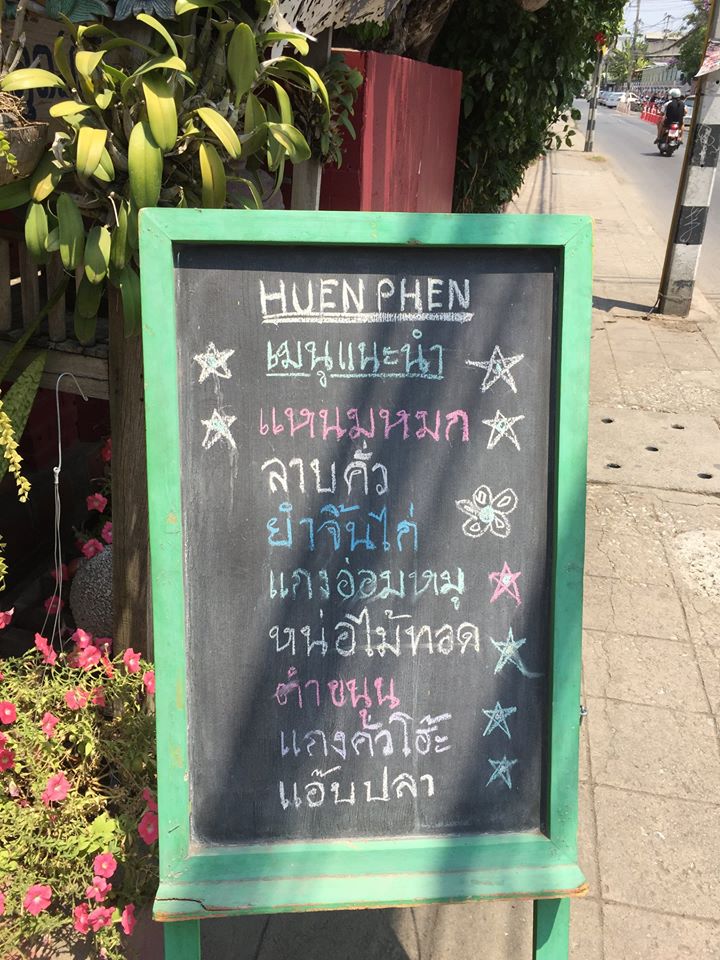 HUEN PHEN
เมนูแนะนำ
แหนมหมก
ลาบคั่ว
ยำจิ๊นไก่
แกงอ่อมหมู
หน่อไม้ทอด
ตำขนุน
แกงคั่วโฮ๊ะ
แอ๊บปลา